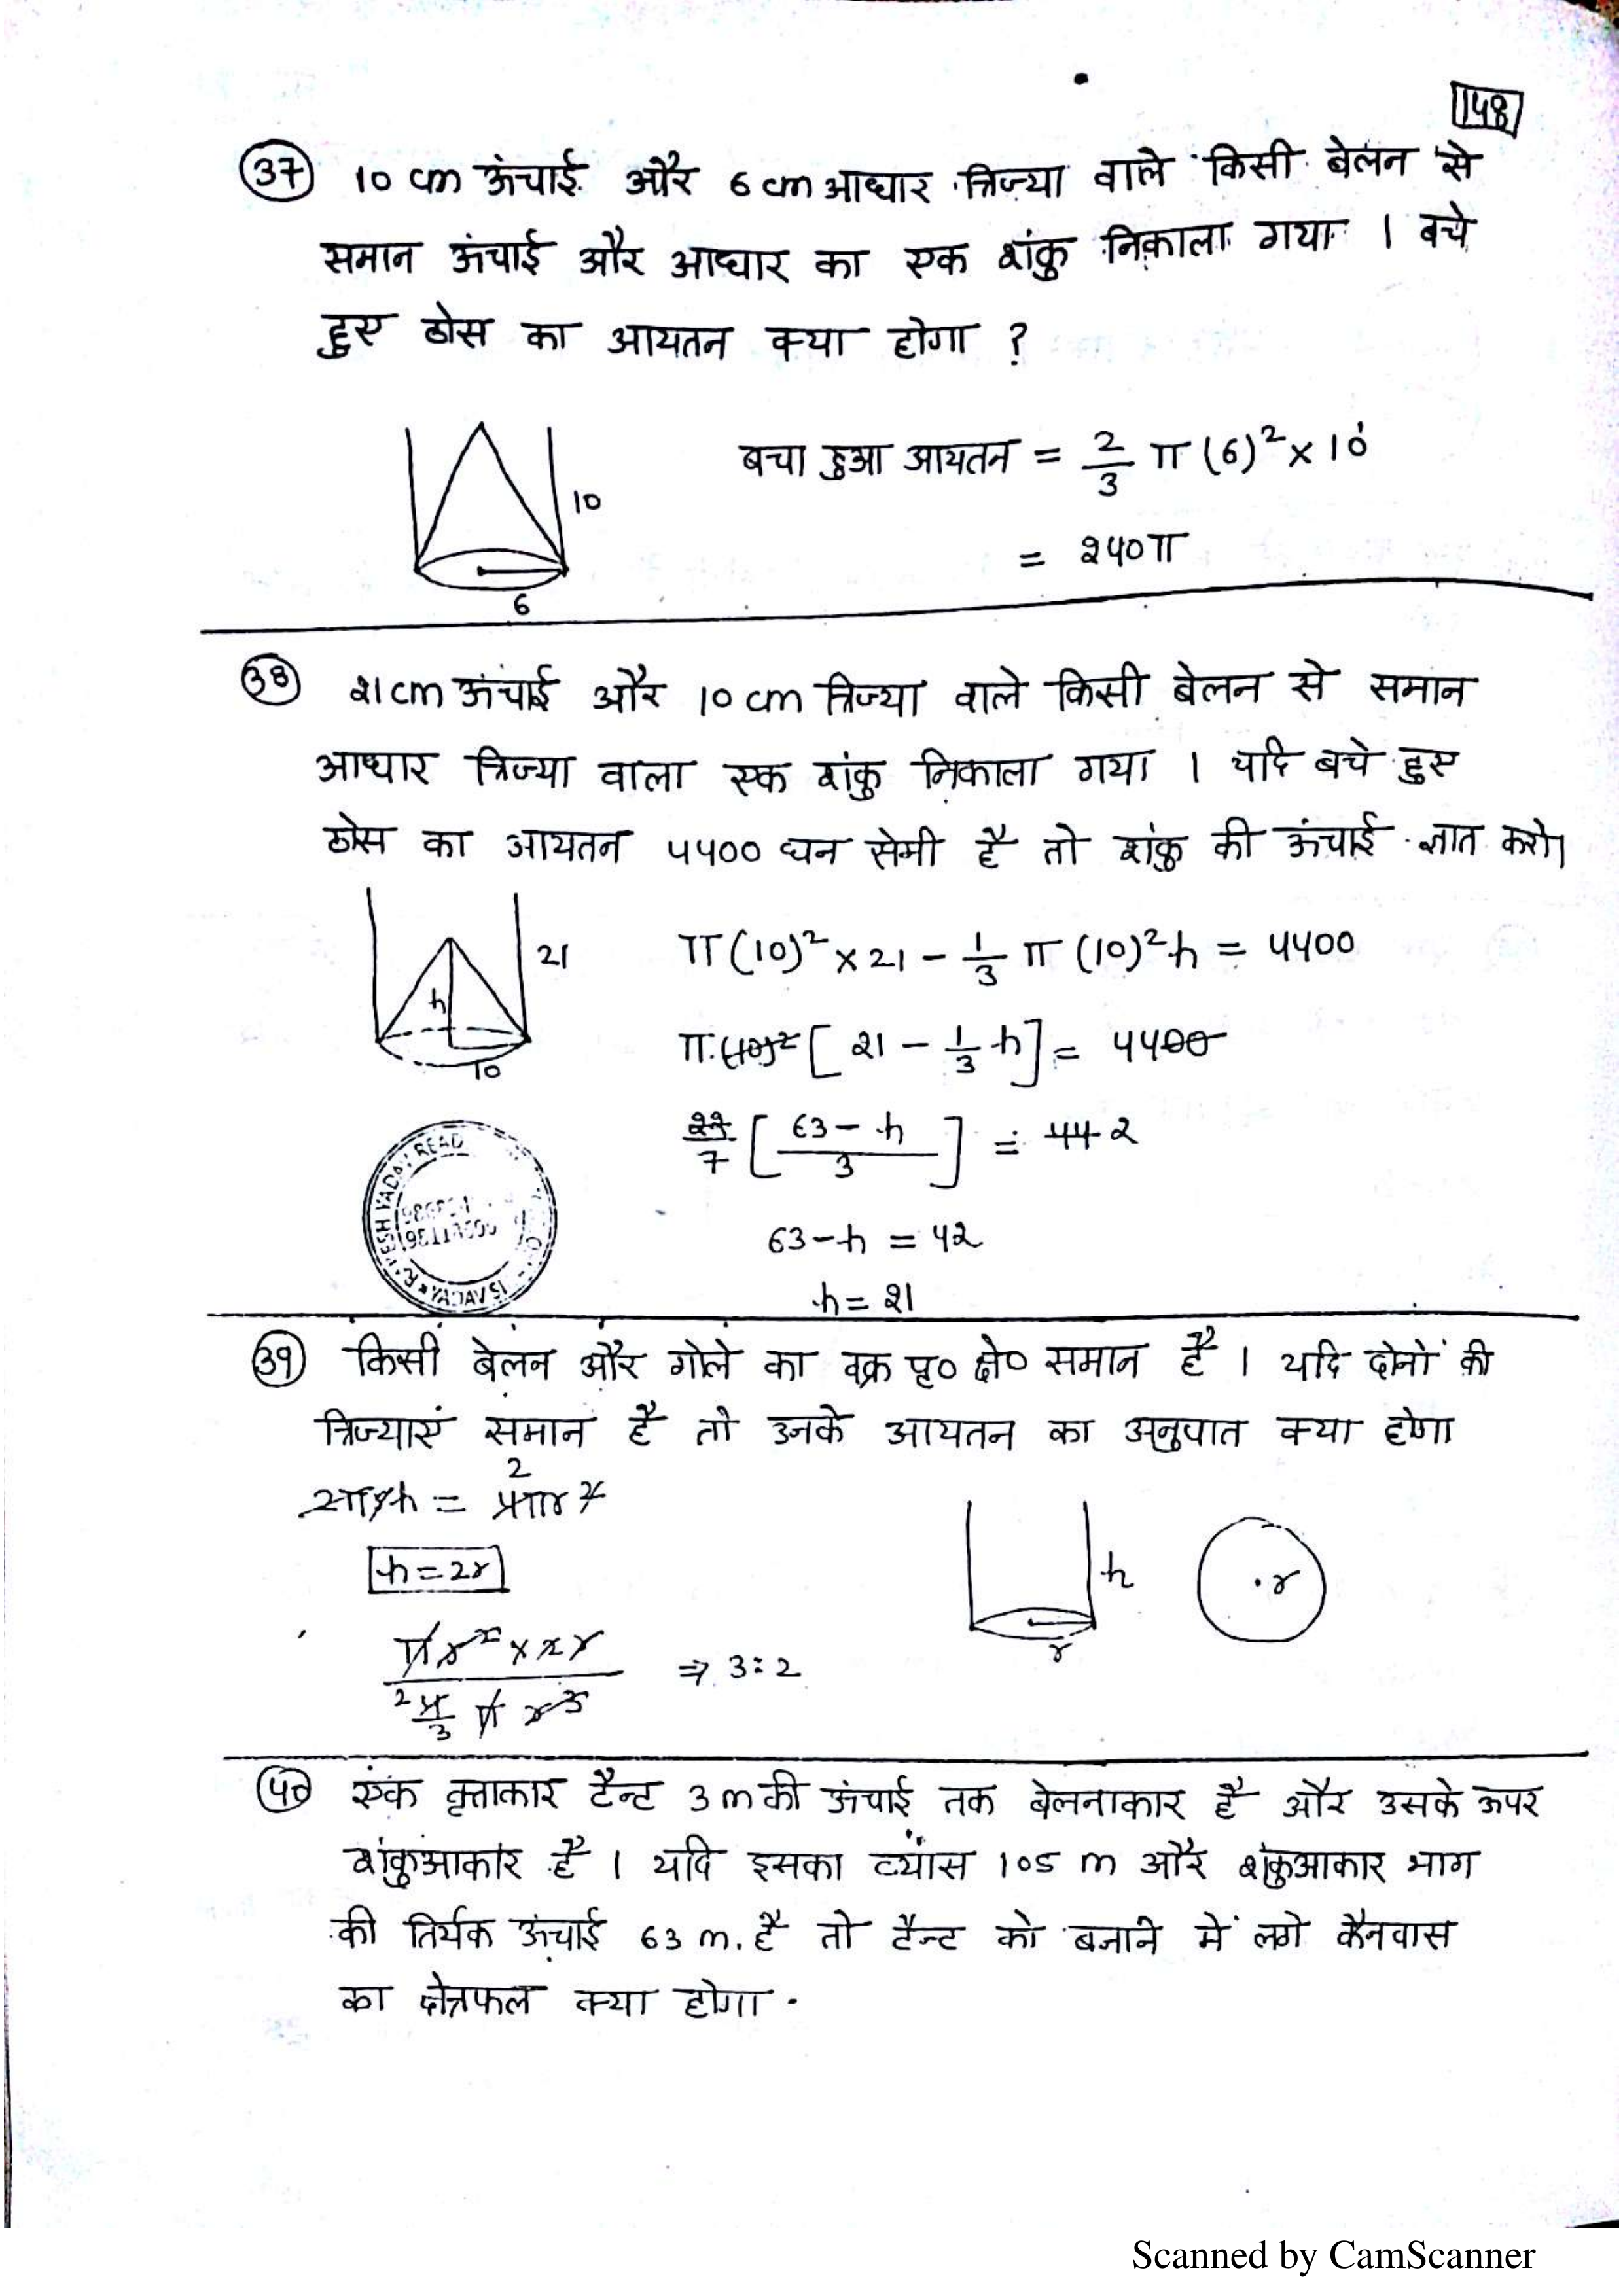 148
(37) 10 cm ऊंचाई और 6 cm आधार त्रिज्या वाले किसी बेलन से
समान ऊंचाई और आधार का एक शंकु निकाला गया । बचे
हुए ठोस का आयतन क्या होगा ?
बचा हुआ आयतन = 2/3 π (6)² × 10
10
= 240π
6
(38) 21 cm ऊंचाई और 10 cm त्रिज्या वाले किसी बेलन से समान
आधार त्रिज्या वाला एक शंकु निकाला गया । यदि बचे हुए
ठोस का आयतन 4400 घन सेमी है तो शंकु की ऊंचाई ज्ञात करो।
π(10)² × 21 - 1/3 π (10)² h = 4400
21
h
10
π (10)² [ 21 - 1/3 h ] = 4400
22/7 [ 63 - h / 3 ] = 44 2
63 - h = 42
h = 21
(39) किसी बेलन और गोले का वक्र पृ० क्षे० समान है । यदि दोनों की
त्रिज्याएं समान है तो उनके आयतन का अनुपात क्या होगा
2πrh = 4πr² 2
h = 2r
h
r
r
πr² × 2r / 4/3 π r³ 2 ⇒ 3:2
(40) एक वृत्ताकार टैन्ट 3 m की ऊंचाई तक बेलनाकार है और उसके ऊपर
शंकुआकार है । यदि इसका व्यास 105 m और शंकुआकार भाग
की तिर्यक ऊंचाई 63 m. है तो टैन्ट को बनाने में लगे कैनवास
का क्षेत्रफल क्या होगा .
Scanned by CamScanner